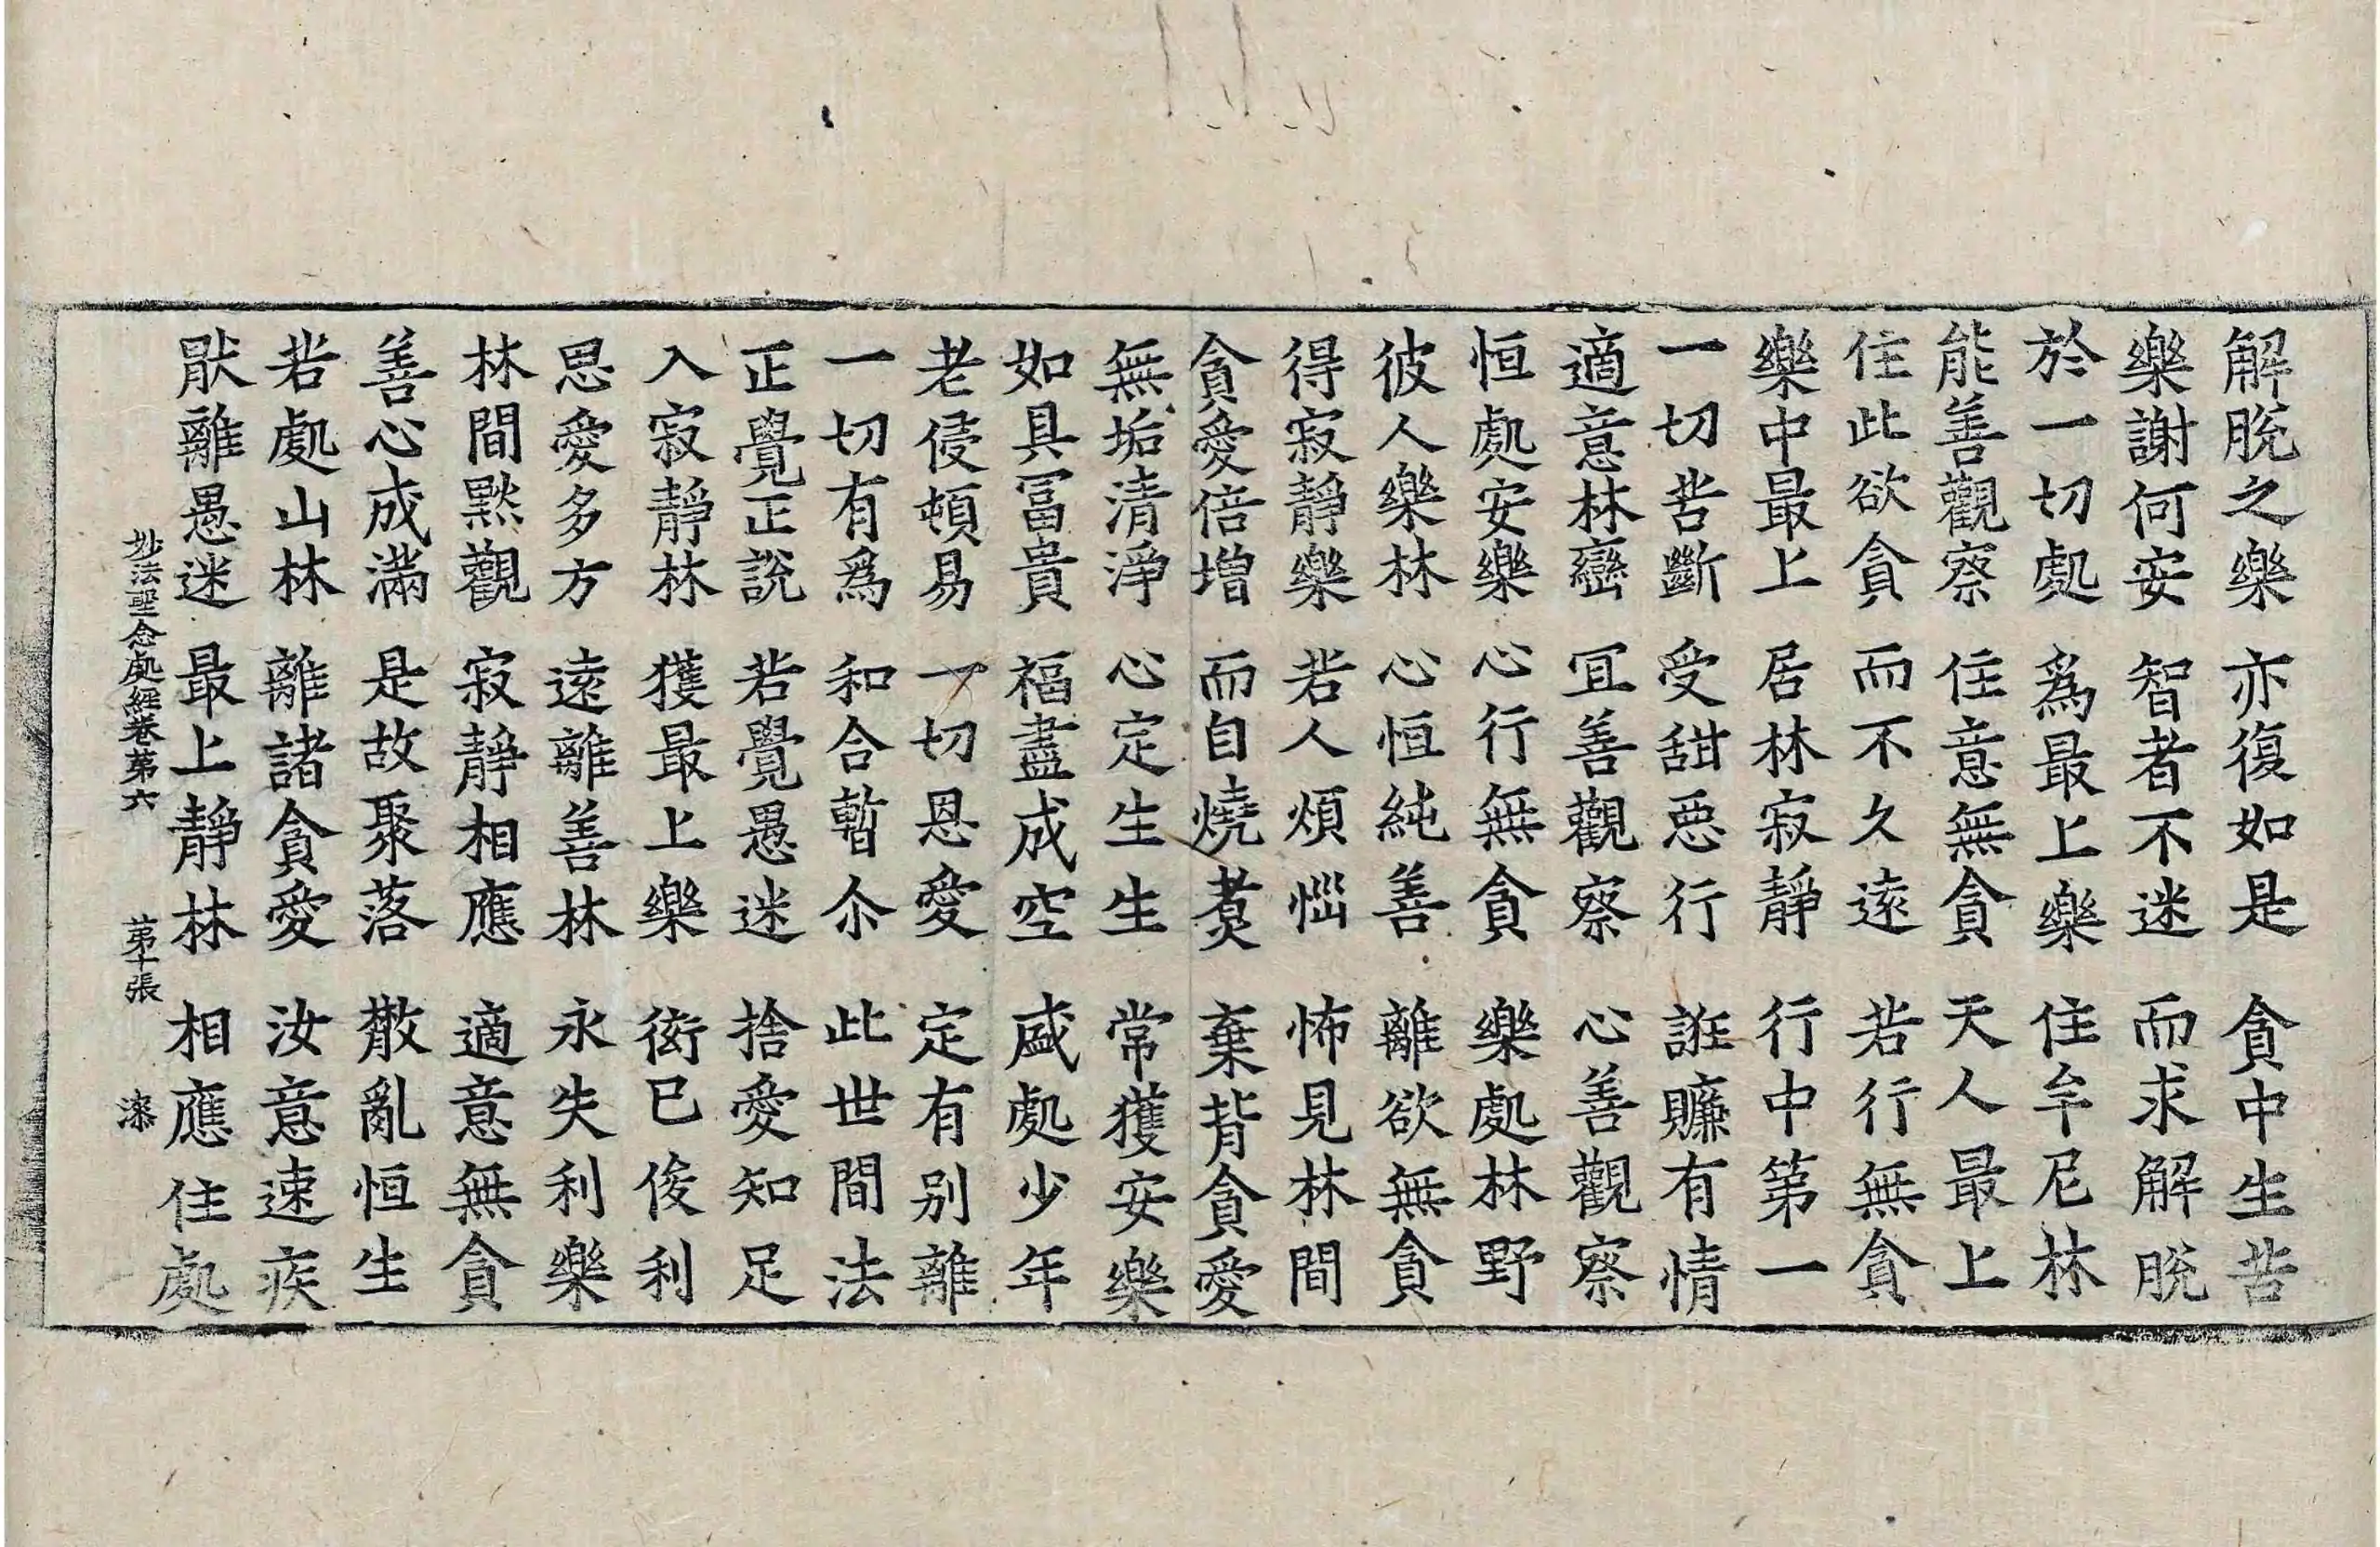 解脫之樂 亦復如是 貪中生苦
樂謝何安 智者不迷 而求解脫
於一切處 爲最上樂 住牟尼林
能善觀察 住意無貪 天人最上
住此欲貪 而不久遠 若行無貪
樂中最上 居林寂靜 行中第一
一切苦斷 受甜惡行 誑賺有情
適意林巒 宜善觀察 心善觀察
恒處安樂 心行無貪 樂處林野
彼人樂林 心恒純善 離欲無貪
得寂靜樂 若人煩惱 怖見林間
貪愛倍增 而自燒煑 棄背貪愛
無垢清淨 心定生生 常獲安樂
如具冨貴 福盡成空 盛處少年
老侵頓易 一切恩愛 定有別離
一切有爲 和合暫尒 此世間法
正覺正說 若覺愚迷 捨愛知足
入寂靜林 獲最上樂 衒巳俊利
思愛多方 遠離善林 永失利樂
林間黙觀 寂靜相應 適意無貪
善心成滿 是故聚落 散亂恒生
若處山林 離諸貪愛 汝意速疾
猒離愚迷 最上靜林 相應住處
妙法聖念處經卷第六 第十張 漆